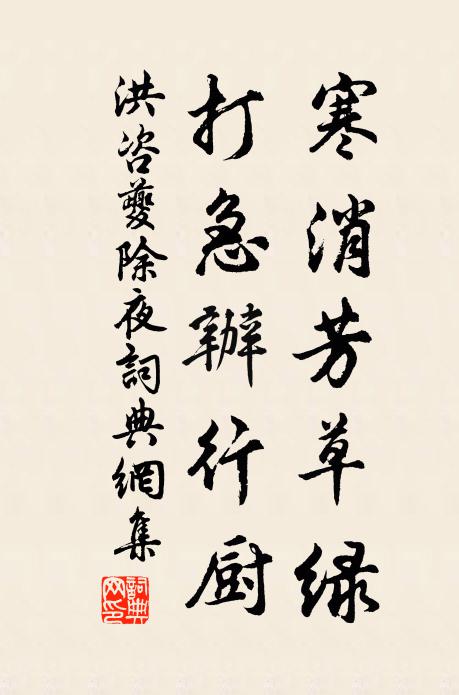 寒消芳草綠
打急辦行厨
洪咨夔除夜詞典網集
詞典
网印